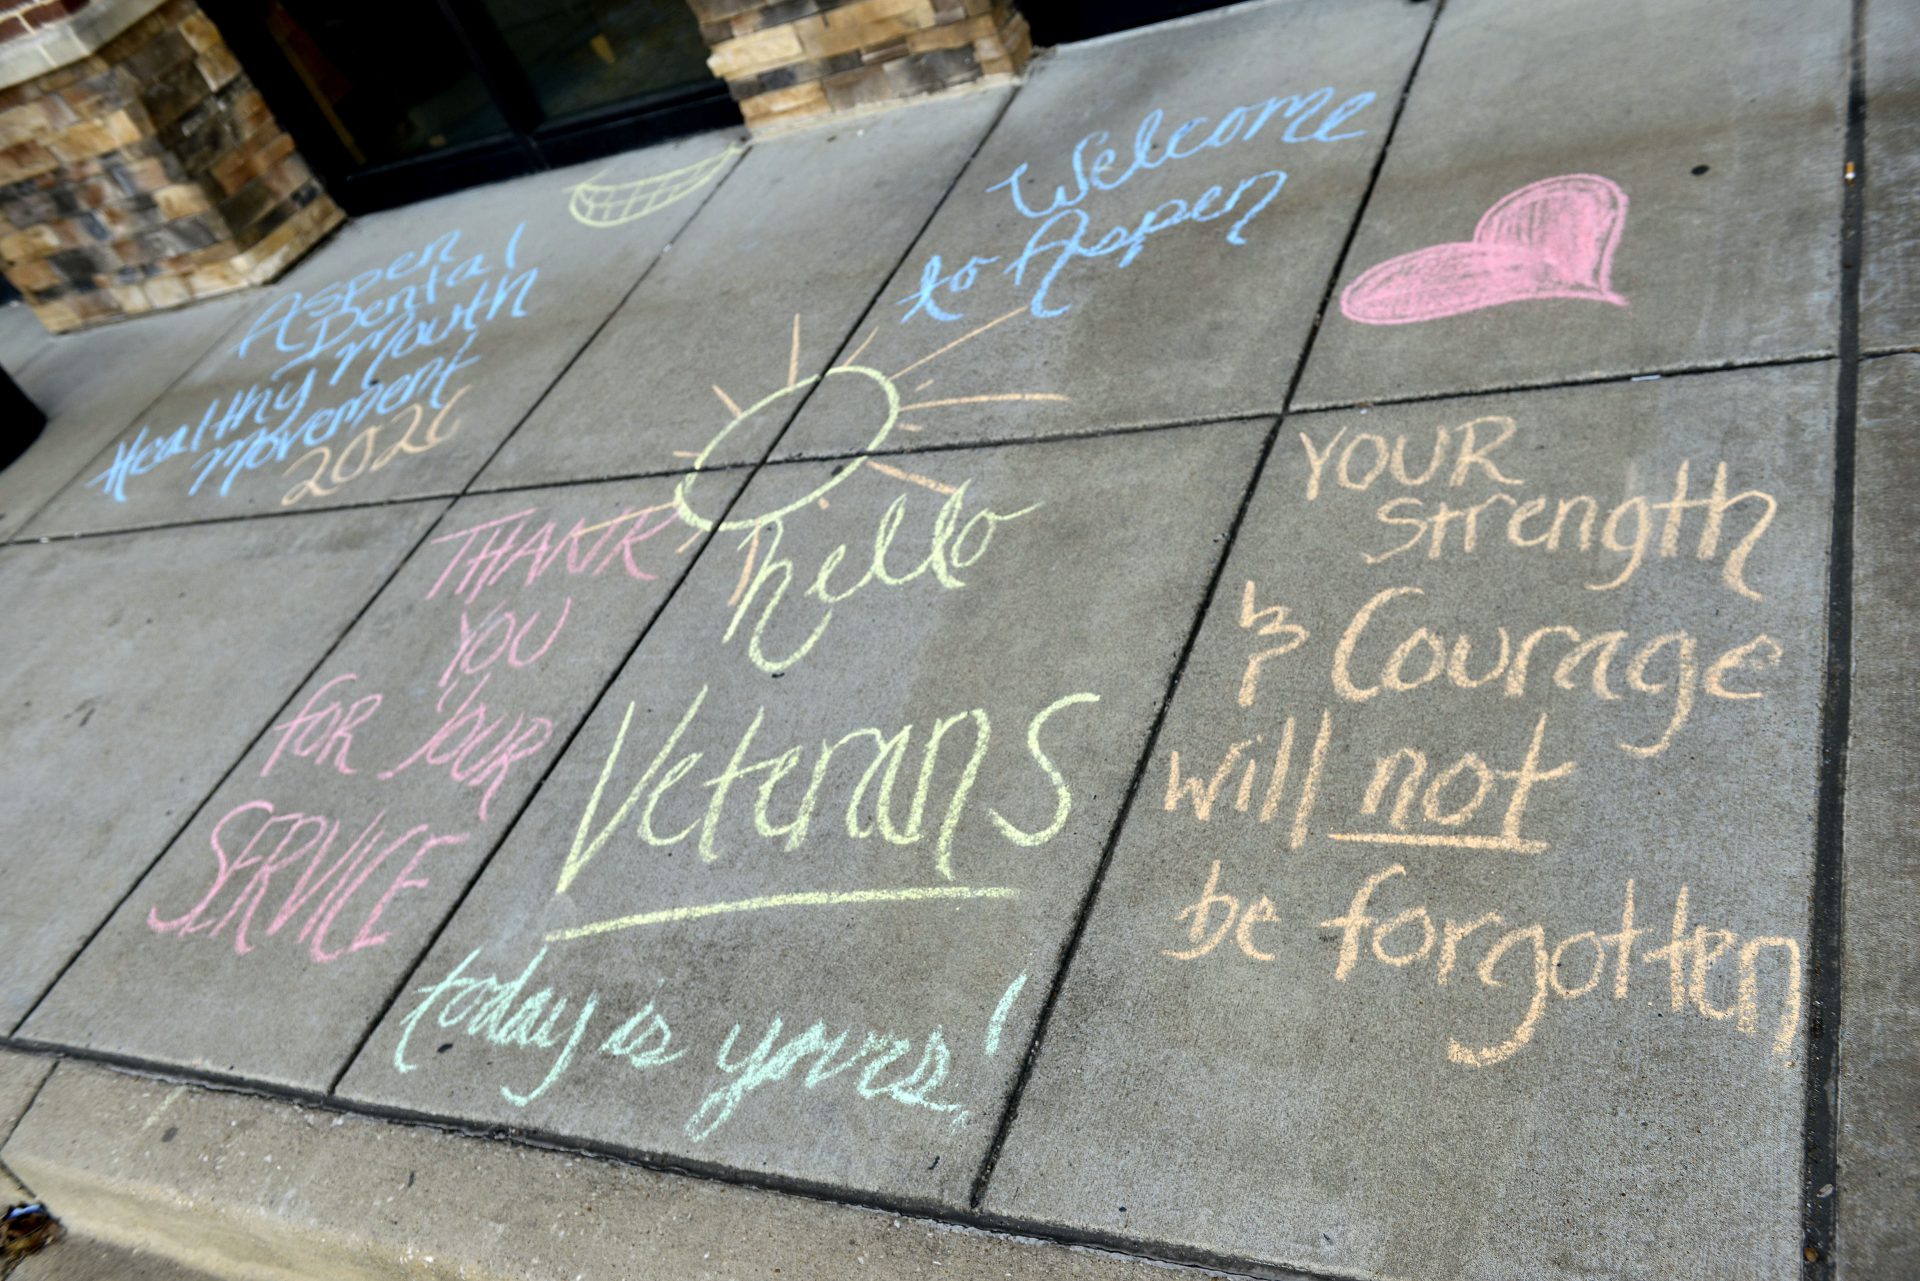 Aspen
Dental
Healthy Mouth
Movement
2026
Welcome
to Aspen
THANK
YOU
for YOUR
SERVICE
hello
Veterans
today is yours!
YOUR
Strength
& Courage
will not
be forgotten